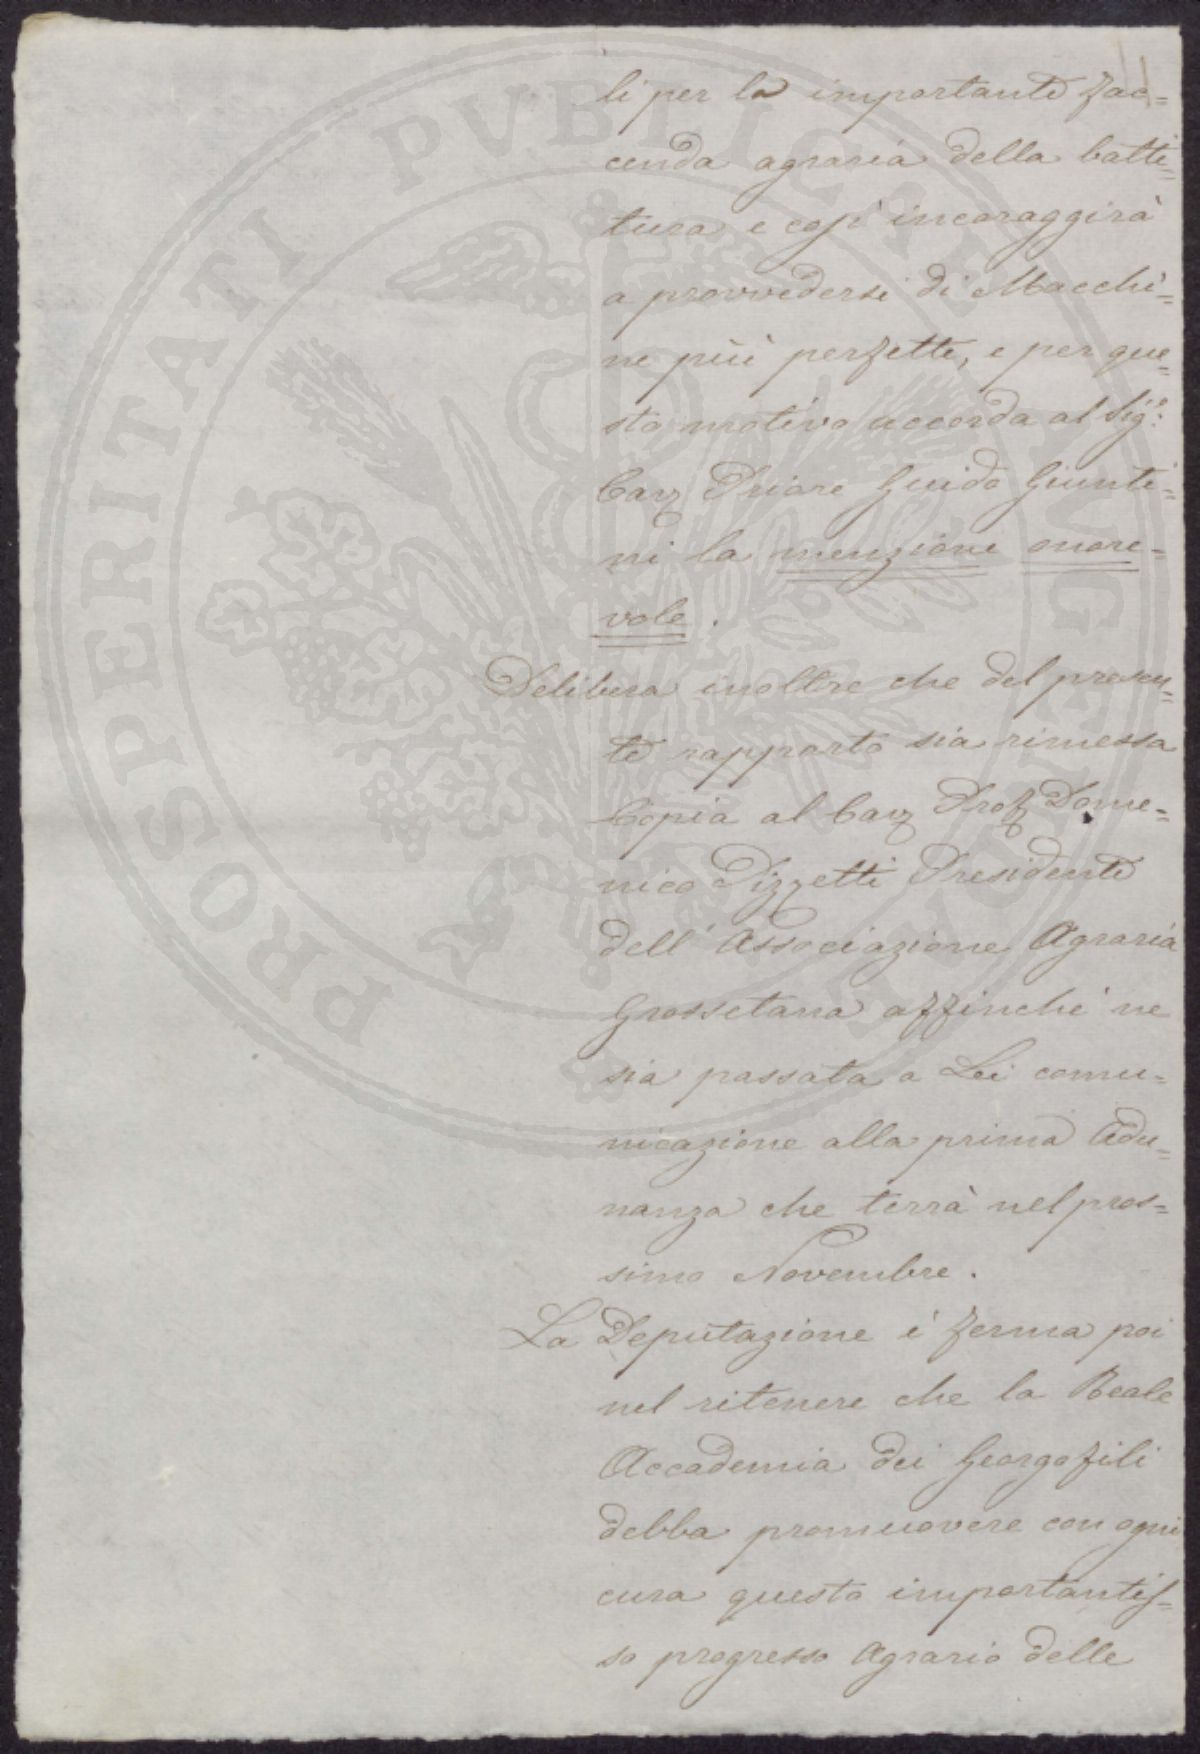 li per la importante fac=
cenda agraria della batti=
tura e così incoraggirà
a provvedersi di Macchi=
ne più perfette, e per que=
sto motivo accorda al Sigr.
Cav Priore Guido Giunti=
ni la menzione onore=
vole.
Delibera inoltre che del presen=
te rapporto sia rimessa
Copia al Cav Prof Dome=
nico Pizzetti Presidente
dell'Associazione Agraria
Grossetana affinchè ne
sia passata a Lei comu=
nicazione alla prima Adu=
nanza che terrà nel pros=
simo Novembre.
La Deputazione è ferma poi
nel ritenere che la Reale
Accademia dei Georgofili
debba promuovere con ogni
cura questo importantis=
so progresso Agrario delle
PROSPERITATI PVBLICAE AVGENDAE